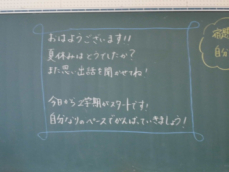 おはようございます!!
夏休みはどうでしたか?
また思い出話を聞かせてね!
今日から2学期がスタートです!
自分なりのペースでがんばっていきましょう!
自分